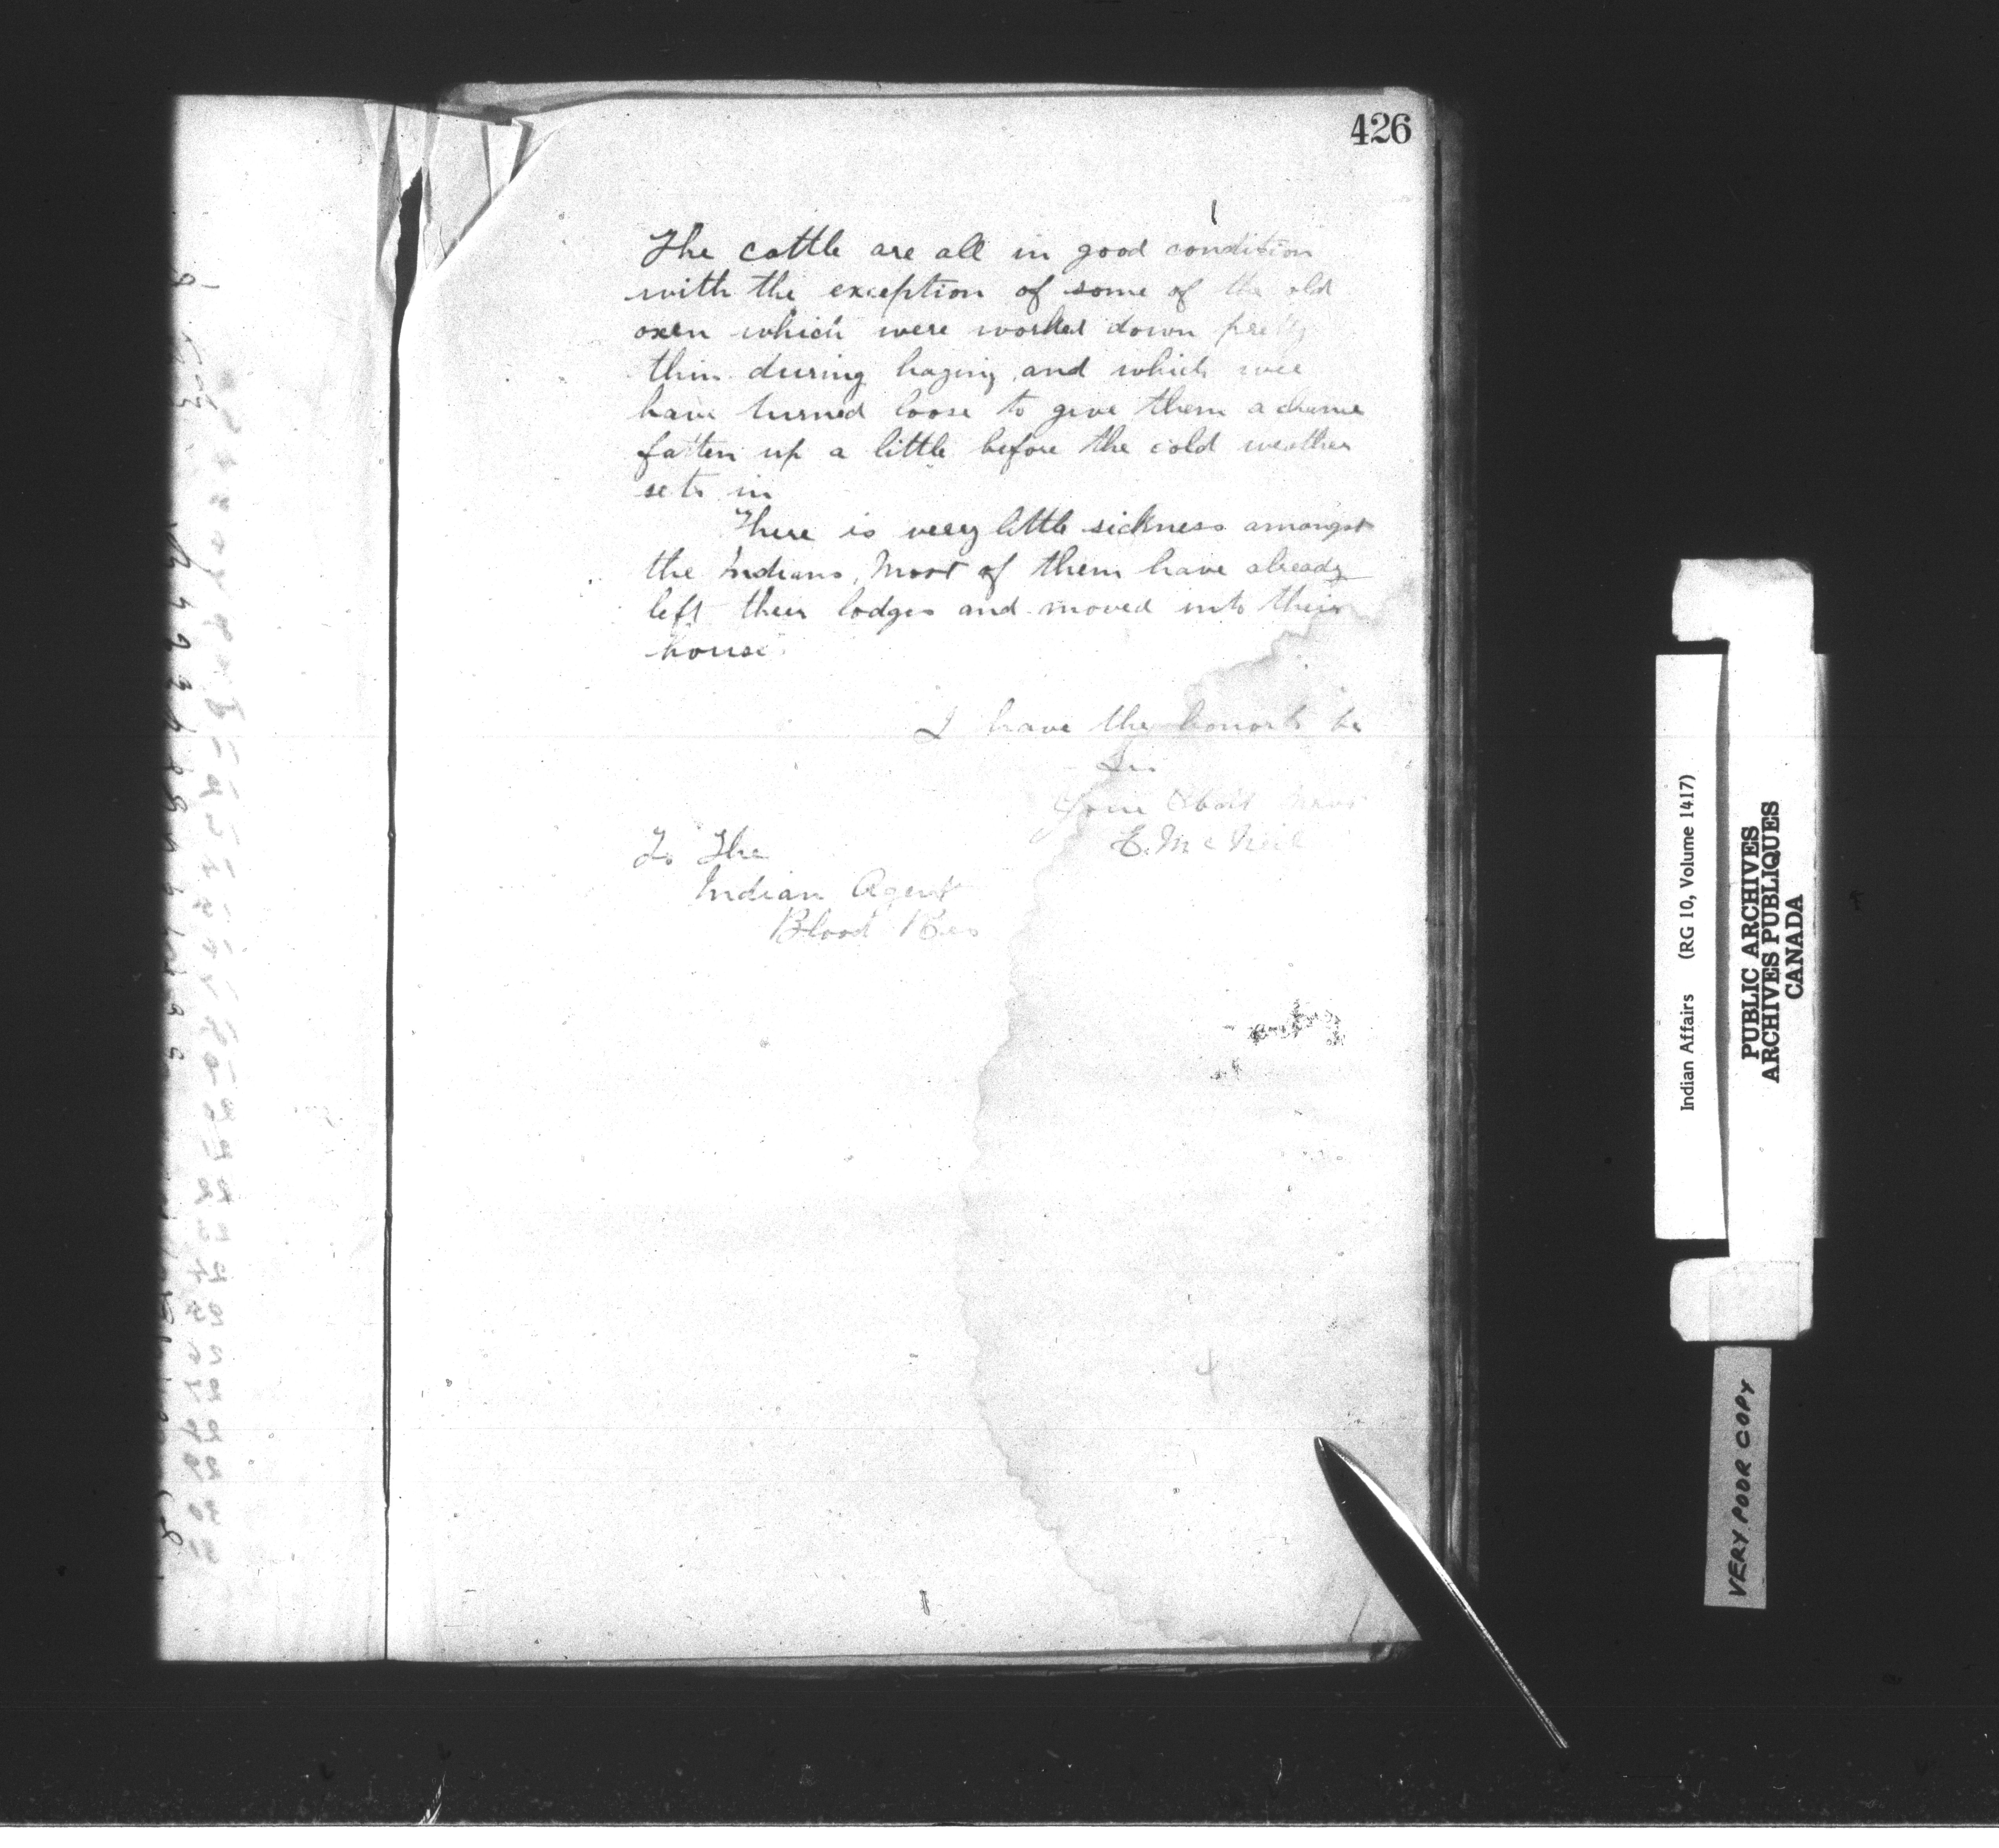 426
The cattle are all in good condition
with the exception of some of the old
oxen which were worked down pretty
thin during haying, and which wee
have turned loose to give them a chance
fatten up a little before the cold weather
sets in
There is very little sickness amongst
the Indians, Most of them have already
left their lodges and moved into their
house
I have the honor to be
Sir
Your Obdt
E. McNeil
To The
Indian Agent
Blood Res
Indian Affairs (RG 10, Volume 1417)
PUBLIC ARCHIVES
ARCHIVES PUBLIQUES
CANADA
VERY POOR COPY